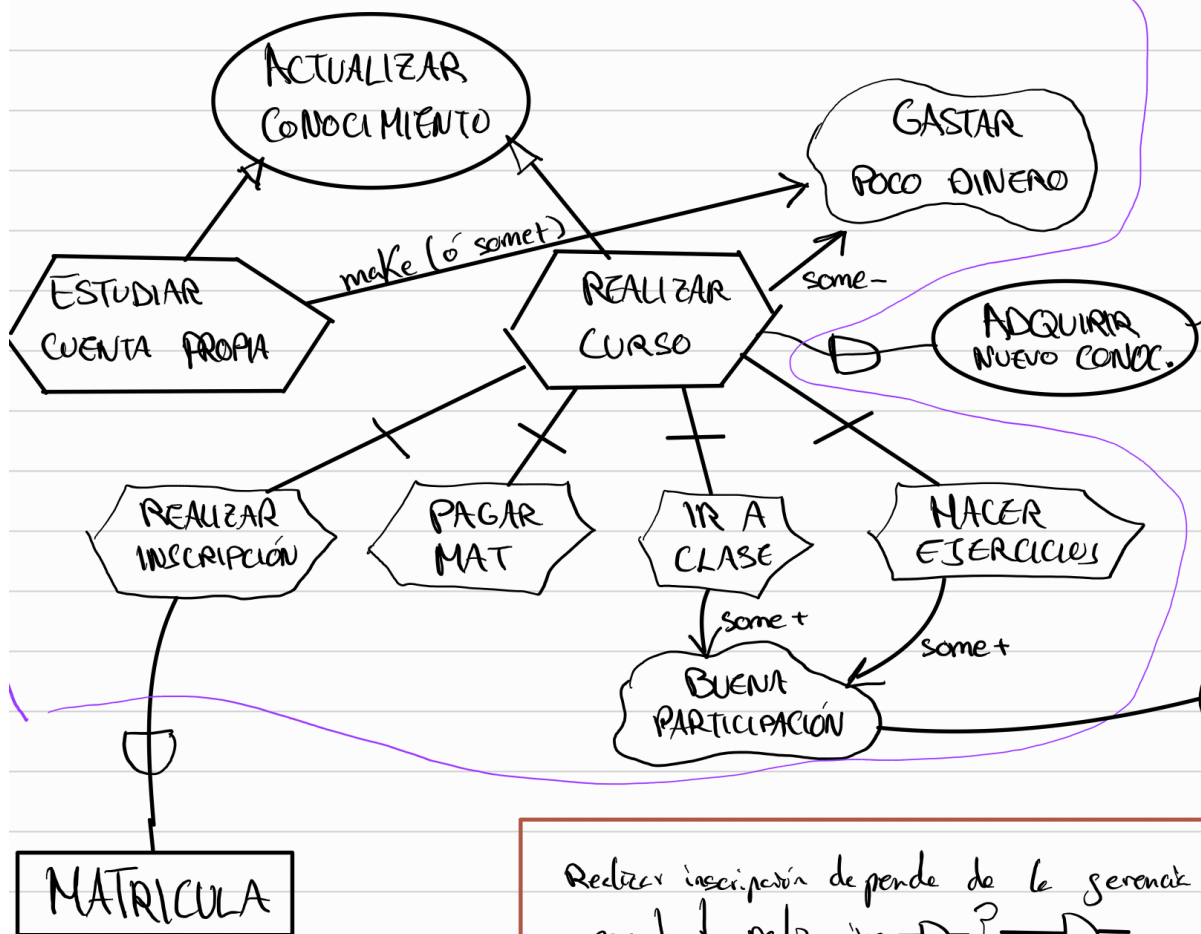 ACTUALIZAR
CONOCIMIENTO
GASTAR
POCO DINERO
make (ó some+)
some-
ESTUDIAR
CUENTA PROPIA
REALIZAR
CURSO
ADQUIRIR
NUEVO CONOC.
REALIZAR
INSCRIPCIÓN
PAGAR
MAT
IR A
CLASE
HACER
EJERCICIOS
some+
some+
BUENA
PARTICIPACIÓN
MATRICULA
Realizar inscripción depende de la gerencia